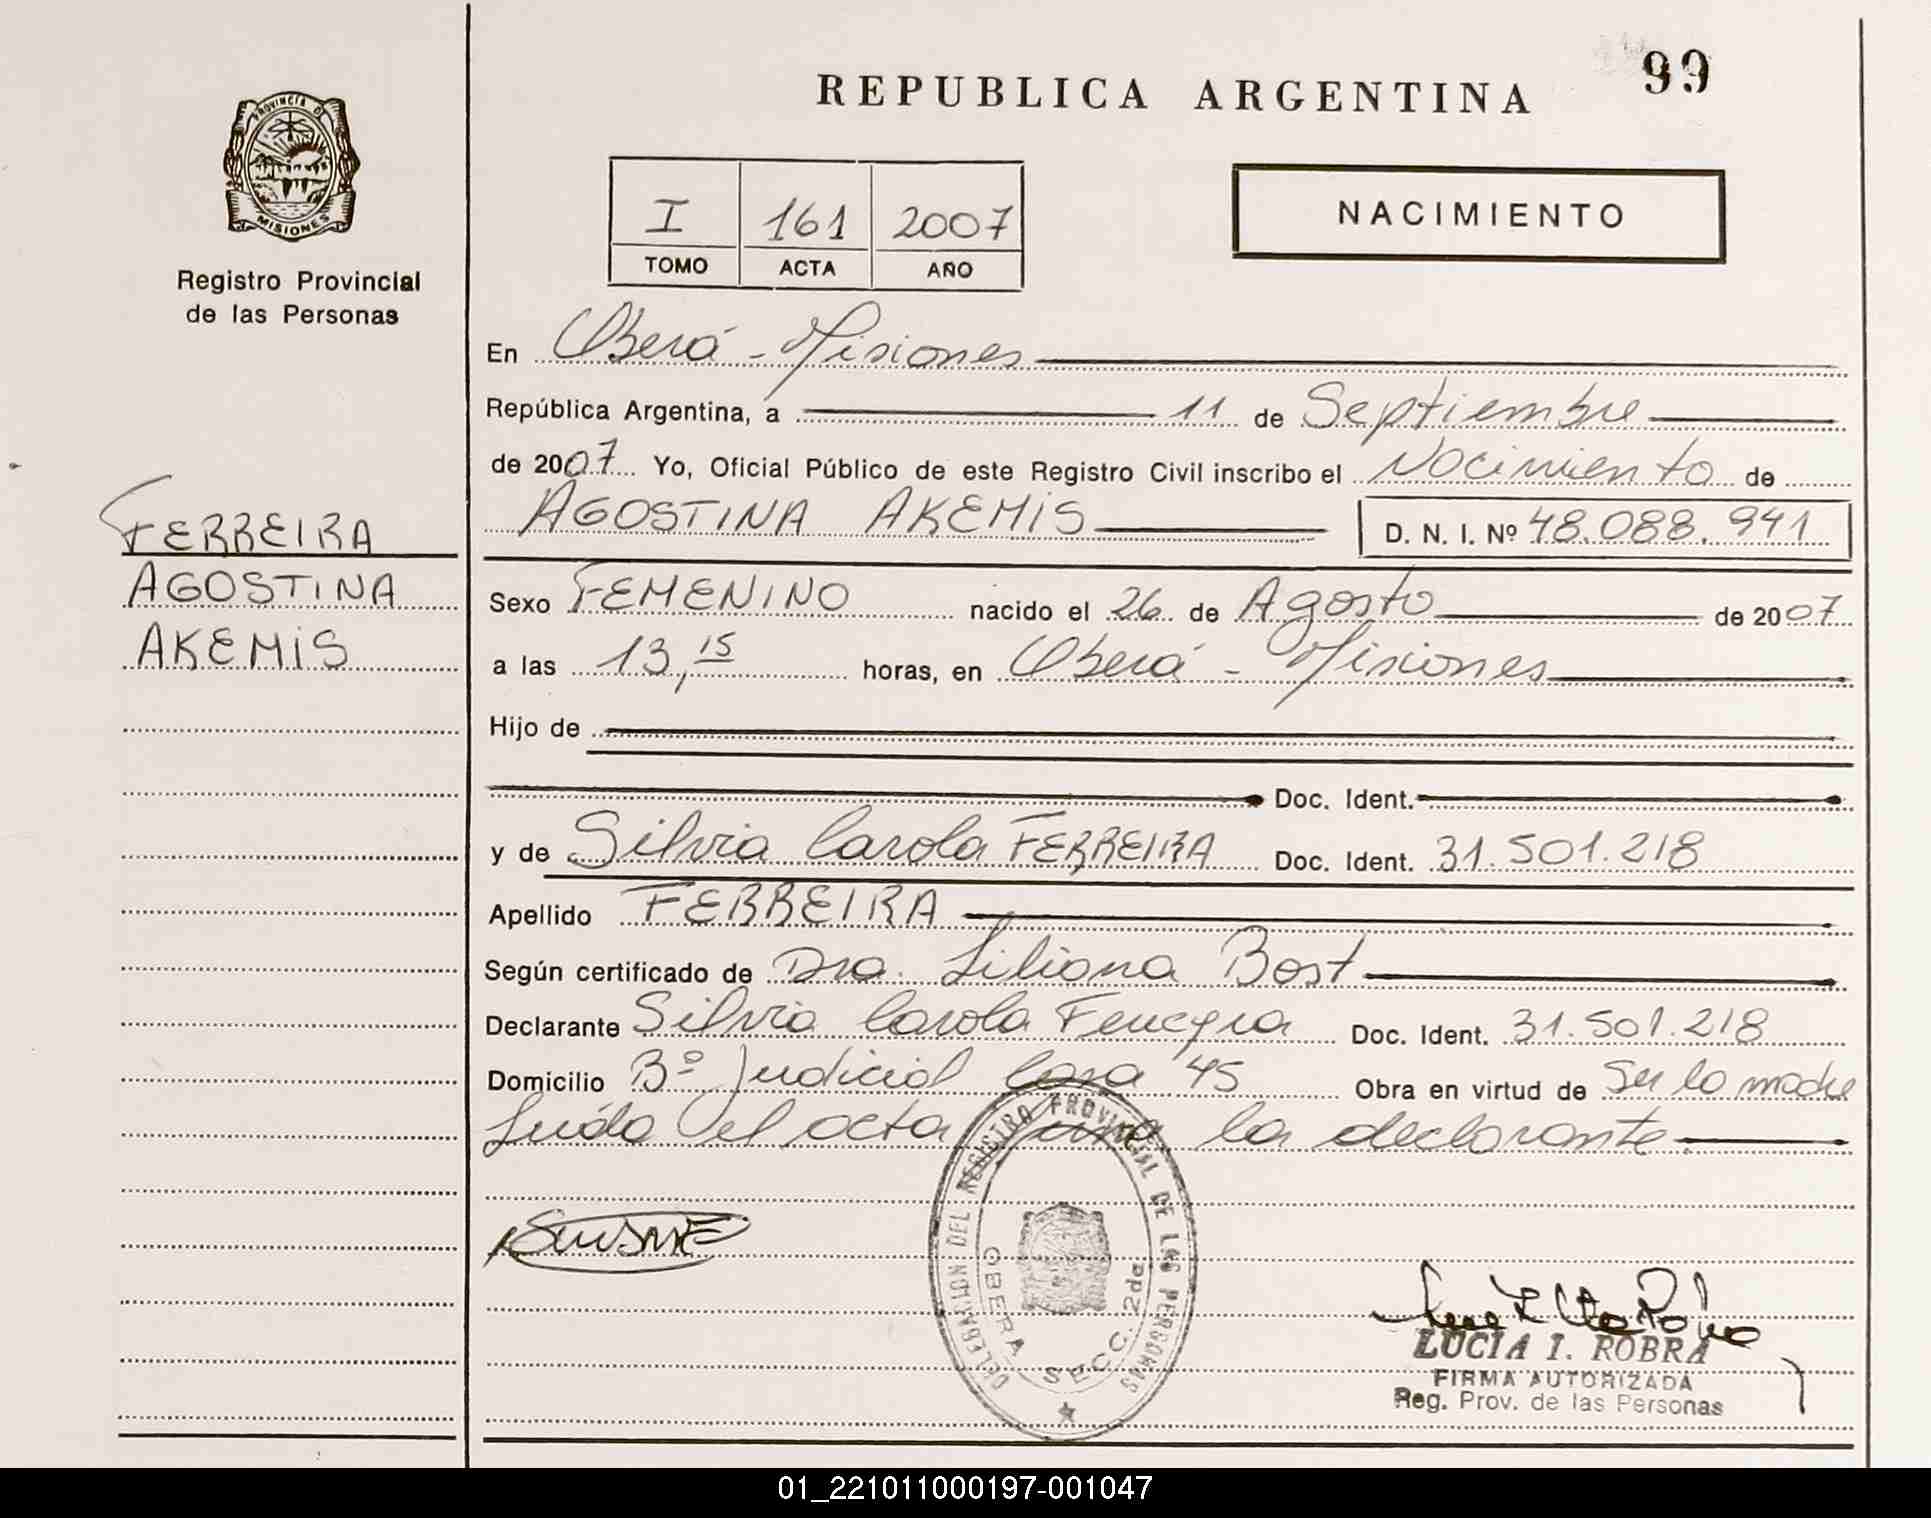 99
REPUBLICA ARGENTINA
PROVINCIA DE
MISIONES
Registro Provincial
de las Personas
I 161 2007
TOMO ACTA AÑO
NACIMIENTO
FERREIRA
AGOSTINA
AKEMIS
En Oberá - Misiones
República Argentina, a 11 de Septiembre
de 2007 Yo, Oficial Público de este Registro Civil inscribo el Nacimiento de
AGOSTINA AKEMIS D. N. I. Nº 48.088.941
Sexo FEMENINO nacido el 26 de Agosto de 2007
a las 13,15 horas, en Oberá - Misiones
Hijo de
Doc. Ident.
y de Silvia Carola FERREIRA Doc. Ident. 31.501.218
Apellido FERREIRA
Según certificado de Dra. Liliana Bost
Declarante Silvia Carola Ferreyra Doc. Ident. 31.501.218
Domicilio Bº Judicial Casa 45 Obra en virtud de Ser la madre
Leída el acta firma la declarante
DELEGACION DEL REGISTRO PROVINCIAL DE LAS PERSONAS
OBERA SECC. 2da
LUCIA I. ROBRA
FIRMA AUTORIZADA
Reg. Prov. de las Personas
01_221011000197-001047